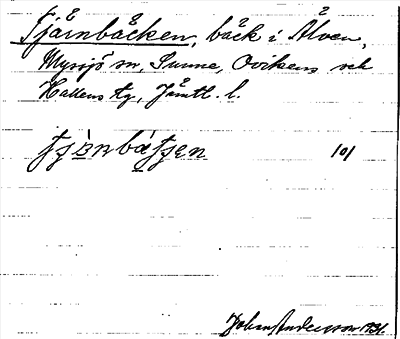 Tjärnbäcken, bäck i Älven,
Myssjö sn, Sunne, Ovikens och
Hallens tg, Jämtl. l.
101
Johan Anderson 1931.